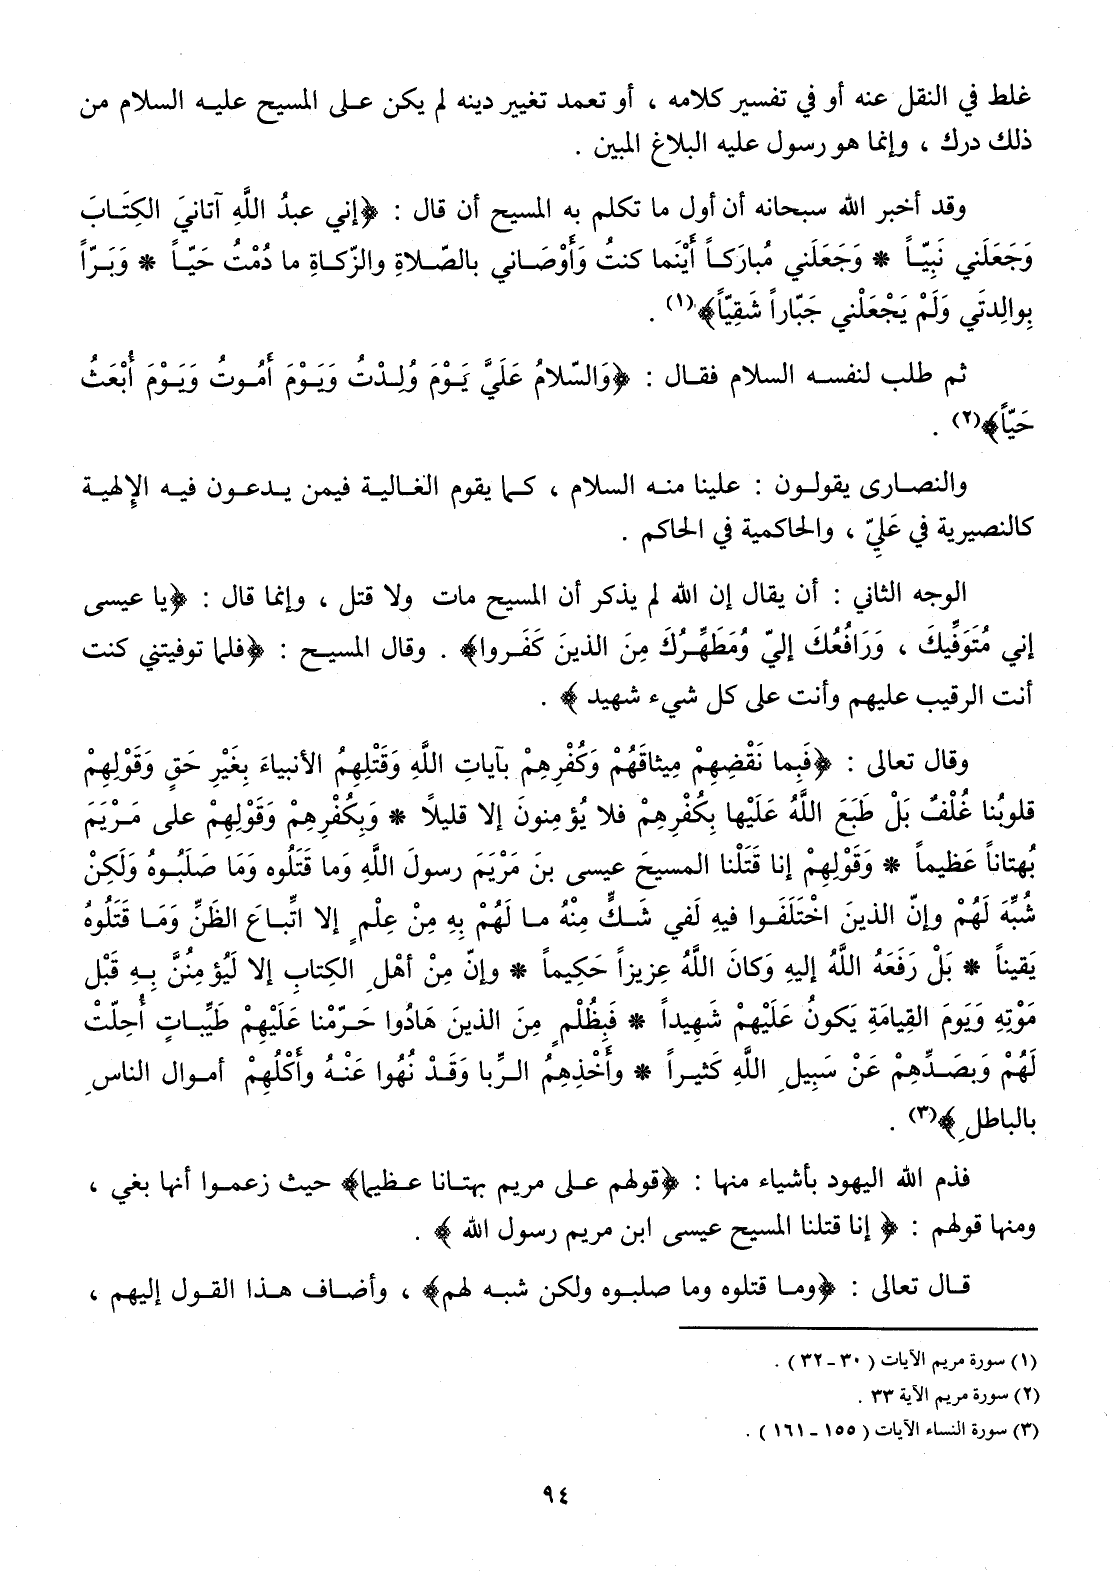 غلط في النقل عنه أو في تفسير كلامه ، أو تعمد تغيير دينه لم يكن على المسيح عليه السلام من
ذلك درك ، وإنما هو رسول عليه البلاغ المبين .
وقد أخبر الله سبحانه أن أول ما تكلم به المسيح أن قال : ﴿إني عبدُ اللَّهِ آتانيَ الكِتَابَ
وَجَعَلَني نَبِيّاً * وَجَعَلَني مُبارَكاً أَيْنَما كنتُ وَأَوْصَاني بالصّلاةِ والزّكاةِ ما دُمْتُ حَيّاً * وَبَرّاً
بِوالِدتَي وَلَمْ يَجْعَلْني جَبّاراً شَقِيّاً﴾(١) .
ثم طلب لنفسه السلام فقال : ﴿وَالسّلامُ عَلَيَّ يَوْمَ وُلِدْتُ وَيَوْمَ أَمُوتُ وَيَوْمَ أُبْعَثُ
حَيّاً﴾(٢) .
والنصارى يقولون : علينا منه السلام ، كما يقوم الغالية فيمن يدعون فيه الإلهية
كالنصيرية في عَلِيّ ، والحاكمية في الحاكم .
الوجه الثاني : أن يقال إن الله لم يذكر أن المسيح مات ولا قتل ، وإنما قال : ﴿يا عيسى
إني مُتَوَفِّيكَ ، وَرَافُعُكَ إليّ وُمَطَهِّرُكَ مِنَ الذينَ كَفَروا﴾ . وقال المسيح : ﴿فلما توفيتني كنت
أنت الرقيب عليهم وأنت على كل شيء شهيد ﴾ .
وقال تعالى : ﴿فَبِما نَقْضِهِمْ مِيثاقَهُمْ وَكُفْرِهِمْ بآياتِ اللَّهِ وَقَتْلِهِمُ الأنبياءَ بِغَيْرِ حَقٍ وَقَوْلِهِمْ
قلوبُنا غُلْفٌ بَلْ طَبَعَ اللَّهُ عَلَيْها بِكُفْرِهِمْ فلا يُؤمنونَ إلا قليلاً * وَبِكُفْرِهِمْ وَقَوْلِهِمْ على مَرْيَمَ
بُهتاناً عَظيماً * وَقَوْلِهِمْ إنا قَتَلْنا المسيحَ عيسى بنَ مَرْيَمَ رسولَ اللَّهِ وَما قَتَلُوه وَمَا صَلَبُوهُ وَلَكِنْ
شُبِّهَ لَهُمْ وإنّ الذينَ اخْتَلَفَوا فيهِ لَفي شَكٍّ مِنْهُ ما لَهُمْ بِهِ مِنْ عِلْمٍ إلا اتِّباعَ الظَنِّ وَمَا قَتَلُوهُ
يَقيناً * بَلْ رَفَعَهُ اللَّهُ إليهِ وَكانَ اللَّهُ عزيزاً حَكيماً * وإنّ مِنْ أهْلِ الكِتابِ إلا لَيُؤمِنُنَّ بِهِ قَبْل
مَوْتِهِ وَيَومَ القِيامَةِ يَكونُ عَلَيْهِمْ شَهِيداً * فَبِظُلْمٍ مِنَ الذينَ هَادُوا حَرّمْنا عَلَيْهِمْ طَيِّباتٍ أُحِلّتْ
لَهُمْ وَبِصَدِّهِمْ عَنْ سَبِيلِ اللَّهِ كَثيراً * وأَخْذِهِمُ الرِّبا وَقَدْ نُهُوا عَنْهُ وأَكْلُهِمْ أموال الناسِ
بالباطلِ﴾(٣) .
فذم الله اليهود بأشياء منها : ﴿قولهم على مريم بهتانا عظيما﴾ حيث زعموا أنها بغي ،
ومنها قولهم : ﴿ إنا قتلنا المسيح عيسى ابن مريم رسول الله ﴾ .
قال تعالى : ﴿وما قتلوه وما صلبوه ولكن شبه لهم﴾ ، وأضاف هذا القول إليهم ،
(١) سورة مريم الآيات ( ٣٠ - ٣٢ ) .
(٢) سورة مريم الآية ٣٣ .
(٣) سورة النساء الآيات ( ١٥٥ - ١٦١ ) .
٩٤